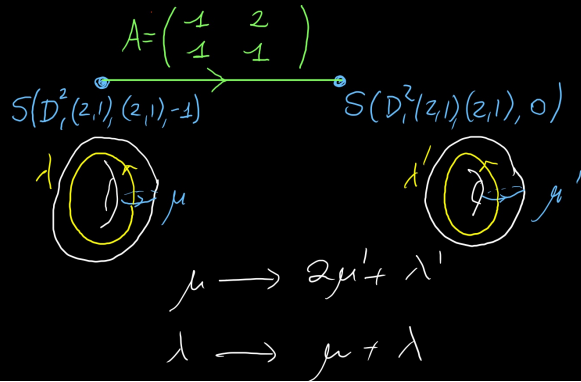 A = ( 1 2
1 1 )
S(D², (2,1), (2,1), -1)
S(D², (2,1)(2,1), 0)
λ μ
λ' μ'
μ ⟶ 2μ' + λ'
λ ⟶ μ + λ